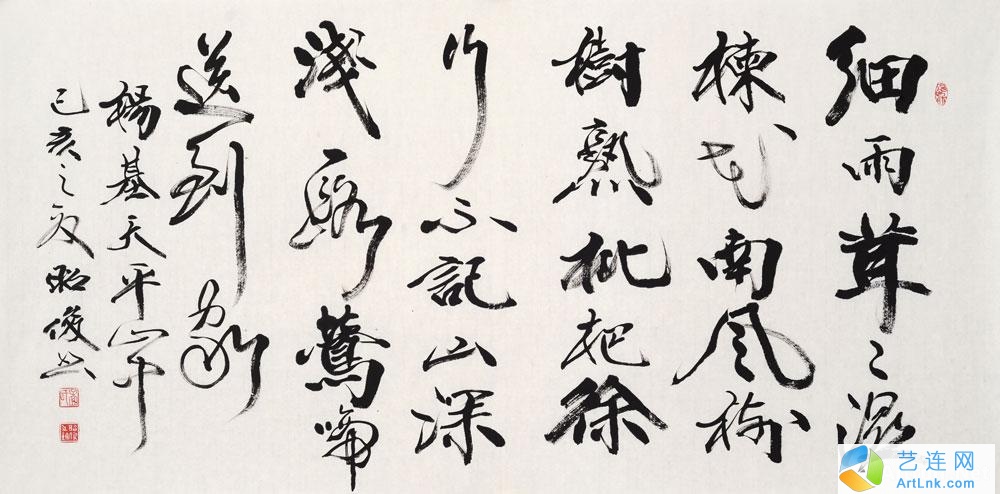 細雨茸〻濕
楝花南風樹
樹熟枇杷徐
行不記山深
淺一路鶯啼
送到家
楊基天平山中
己亥之夏昭俊書
艺连网
ArtLnk.com